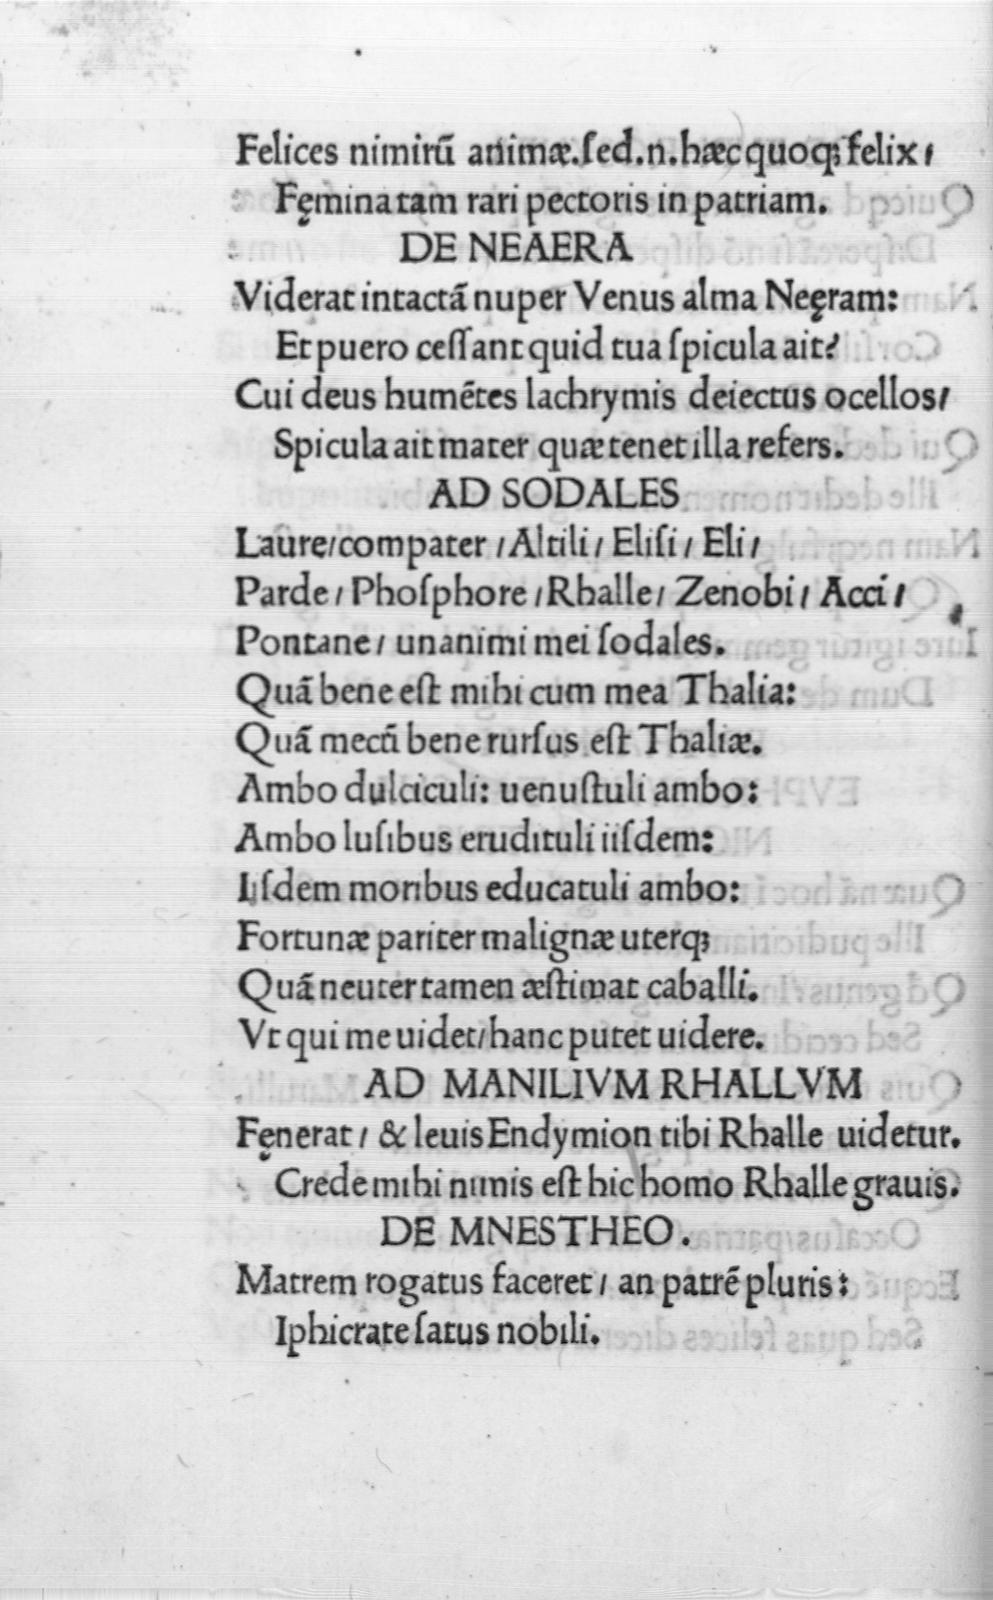 Felices nimirū animæ.ſed.n.hæc quoqꝫ felix/
Fęmina tam rari pectoris in patriam.
DE NEAERA
Viderat intactā nuper Venus alma Neęram:
Et puero ceſſant quid tua ſpicula ait?
Cui deus humētes lachrymis deiectus ocellos/
Spicula ait mater quæ tenet illa refers.
AD SODALES
Laūre/compater / Altili / Eliſi / Eli /
Parde / Phoſphore / Rhalle / Zenobi / Acci /
Pontane / unanimi mei ſodales.
Quā bene eſt mihi cum mea Thalia:
Quā mecū bene rurſus eſt Thaliæ.
Ambo dulciculi: uenuſtuli ambo:
Ambo luſibus erudituli iiſdem:
Iiſdem moribus educatuli ambo:
Fortunæ pariter malignæ uterqꝫ
Quā neuter tamen æſtimat caballi.
Vt qui me uidet/hanc putet uidere.
AD MANILIVM RHALLVM
Fęnerat / & leuis Endymion tibi Rhalle uidetur.
Crede mihi nimis eſt hic homo Rhalle grauis.
DE MNESTHEO.
Matrem rogatus faceret / an patrē pluris:
Iphicrate ſatus nobili.